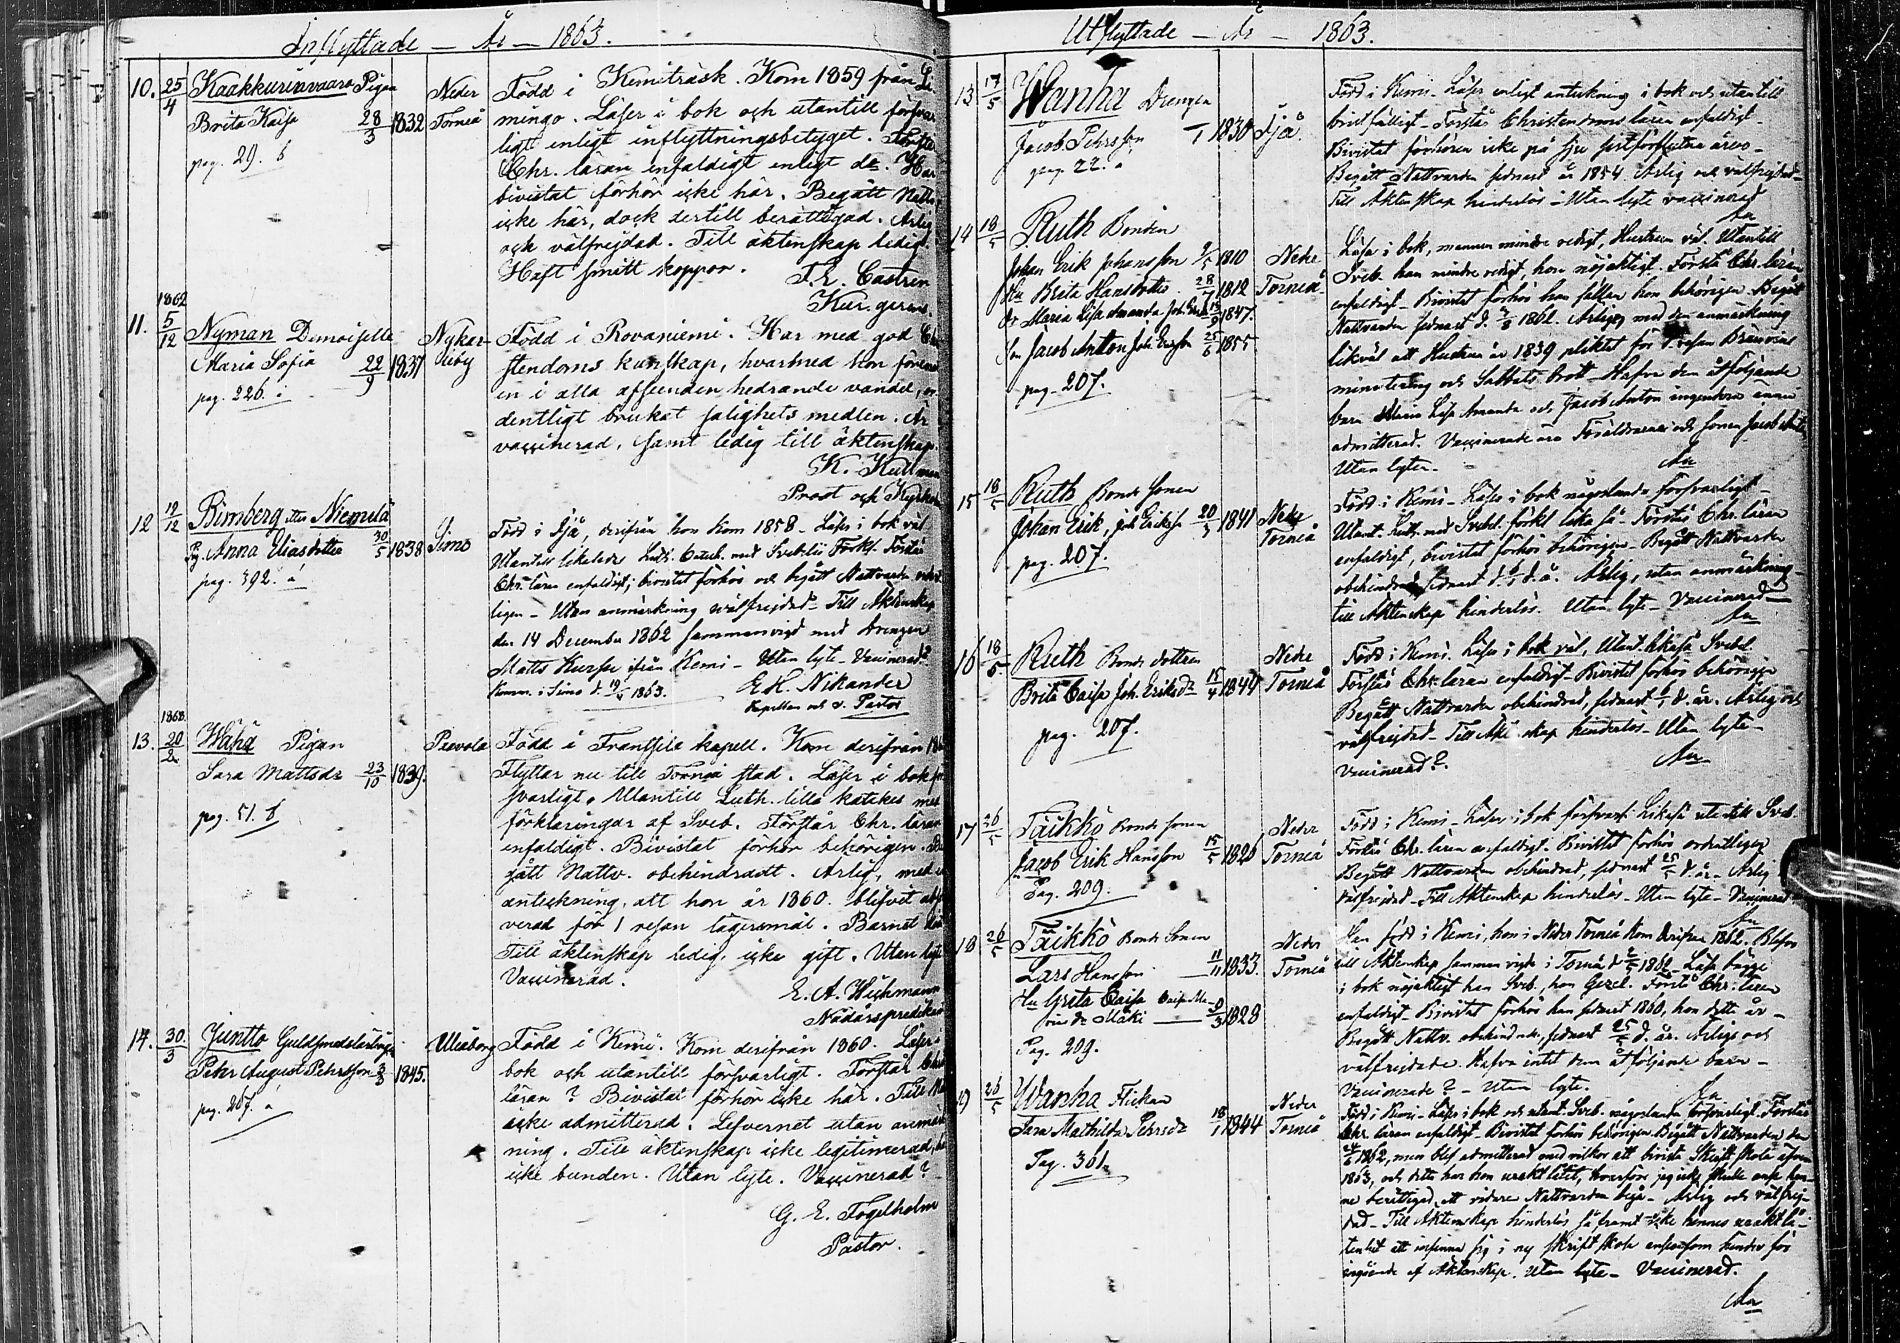 Inflyttade – År – 1863.
10. 25/4 Kaakkurinvaara Pigan
Brita Kajsa 28/3 1832
pag. 29. b
Neder
Torneå
Född i Kemiträsk. Kom 1859 från Li
mingo. Läser i bok och utantill försvar
ligt enligt inflyttningsbetyget. Förstår
Chr. läran enfaldigt enligt do. Har
bivistat förhör icke här. Begått Nattv.
icke här, dock dertill berättigad. Ärlig
och välfrejdad. Till äktenskap ledig.
Haft smitt koppor.
Castren
Kur. gerens
1862
11. 5/12 Nyman Demoiselle
Maria Sofia 22/9 1837
pag. 226.
Nykar-
leby
Född i Rovaniemi. Har med god Chri
stendoms kunskap, hvarmed hon förenat
en i alla afseenden hedrande vandel, or
dentligt brukat salighets medlen. Är
vaccinerad, samt ledig till äktenskap.
K.
Prost och Kyrkoh
12 19/12 Bimberg eller Niemilä
Pig. Anna Eliasdotter 30/5 1838
pag. 392.
Simo
Född i Ijå, derifrån hon kom 1858 – Läser i bok väl
Utantill likaledes Luth. Catech. med Svebelii Förkl. Förstår
Chr. läran enfaldigt, bivistat förhör och begått Nattvarden
ligen – Utan anmärkning välfrejdad – Till Äktenskap
den 14 December 1862 sammanvigd med Drengen
Matts från Kemi – Utan lyte – Vaccinerad?
Simo d. 1863.
E. H. Nikander
Kapellan och v. Pastor
1863.
13. 20/2 Wähä Pigan
Sara Mattsdr 23/10 1839.
pag. 51. b
Paavola
Född i Frantsila kapell. Kom derifrån
Flyttar nu till Torneå stad. Läser i bok för
svarligt. Utantill Luth. lilla katekes med
förklaringar af Sveb. Förstår Chr. läran
enfaldigt. Bivistat förhör behörigen. Be
gått Nattv. obehindradt. Ärlig, med
anteckning, att hon år 1860. blifvit
verad för 1 resan lägersmål. Barnet
Till äktenskap ledig, icke gift. Utan lyte
Vaccinerad.
E. A. Wichmann
Nådårspredikant
14. 30/3 Juntto Guldsmedslärling
Pehr August Pehrsson 3/3 1845.
pag. 207. a
Uleåborg
Född i Kemi. Kom derifrån 1860. Läser i
bok och utantill försvarligt. Förstår Chr
läran? Bivistat förhör icke här. Till N
icke admitterad. Lefvernet utan anmärk
ning. Till äktenskap icke legitimerad,
icke bunden. Utan lyte. Vaccinerad?
G. E. Fogelholm
Pastor.
Utflyttade – År – 1863.
13 17/5 Wanha Drengen
Jacob Pehrsson 1830
pag. 22. a
Ijå.
Född i Kemi. Läser enligt anteckning i bok och utantill
bristfälligt – Förstår Christendomsläran enfaldigt –
Bivistat förhören icke på sju sistförflutna åren –
Begått Nattvarden sednast år 1854. Ärlig och välfrejdad –
Till Äktenskap hinderlös – Utan lyte vaccinerad
14 18/5 Ruth Bonden
Johan Erik Johansson 1810
Hu Brita Hansdotter 28/7 1812
dr Maria Lisa Amanda Joh. Ersdr 1847.
son Jacob Anton Joh. Ersson 25/6 1855
pag. 207.
Neder
Torneå
Läser i bok, mannen mindre redigt, Hustrun väl. Utantill
Sveb. han mindre redigt, hon nöjaktigt. Förstå Chr. läran
enfaldigt. Bivistat förhör han sällan hon behörigen. Begått
Nattvarden sednast d. 1862. Ärliga med den anmärkning
likväl att Hustrun år 1839 pliktat för 1 resan Brännvins
minutering och Sabbats brott – Hafva dem åtföljande
barn Maria Lisa Amanda och Jacob Anton ingendera ännu
admitterad. Vaccinerade äro Föräldrarne och sonen Jacob
Utan lyten.
15 18/5 Ruth Bonde Sonen
Johan Erik, Joh. Eriksson 20/3 1841
pag. 207.
Neder
Torneå
Född i Kemi – Läser i bok någorlunda försvarligt –
Utant. Luth. med Svebel. förkl. lika så – Förstår Chr. läran
enfaldigt, bivistat förhör behörigen – Begått Nattvarden
obehindrad sednast d. d. å. Ärlig, utan anmärkning –
till Äktenskap hinderlös. Utan lyte – Vaccinerad –
16 18/5 Ruth Bonde dottren
Brita Caisa Joh. Eriksdr 15/4 1844
pag. 207.
Neder
Torneå
Född i Kemi. Läser i bok väl, Utant. likaså Svebel.
Förstår Chr. läran enfaldigt. Bivistat förhör behörigen
Begått Nattvarden obehindrad, sednast d. år. Ärlig och
välfrejdad – Till Äktenskap hinderlös – Utan lyte –
Vaccinerad?
17 26/5 Taikko Bonde Sonen
Jacob Erik Hansson 15/5 1826
Pag. 209.
Neder
Torneå
Född i Kemi – Läser i bok försvarl. Likaså utantill Sveb.
Förstår Chr. läran enfaldigt. Bivistat förhör ordentligen
Begått Nattvarden obehindrad, sednast 25/5 d. år – Ärlig
välfrejdad – Till Äktenskap hinderlös – Utan lyte – Vaccinerad
18 26/5 Taikko Bonde Sonen
Lars Hansson 11/11 1833
Hu Greta Caisa
Mäki 1828
Pag. 209.
Neder
Torneå
Han född i Kemi, hon i Neder Torneå kom derifrån 1862. Blefvo
till Äktenskap sammanvigde i Torneå d. 1862. Läsa begge
i bok nöjaktigt han Sveb., hon Gezel. Förstå Chr. läran
enfaldigt. Bivistat förhör han sednast 1860, hon detta år –
Begått Nattv. obehindrade, sednast 25/5 d. år. Ärliga och
välfrejdade. Hafva intet dem åtföljande barn –
Vaccinerade? – Utan lyte.
19 26/5 Wanha Flickan
Sara Mathilda Pehrsdr 18/1 1844
Pag. 301.
Neder
Torneå
Född i Kemi – Läser i bok och utant. Sveb. någorlunda försvarligt. Förstår
Chr. läran enfaldigt – Bivistat förhör behörigen Begått Nattvarden den
1862, men blef admitterad med vilkor att bivista Skriftskola äfven
1863, och detta har hon uraktlåtit, hvarföre jag icke skulle anse hen-
ne berättigad att vidare Nattvarden begå – Ärlig och välfrej-
dad – Till Äktenskap hinderlös så framt icke hennes uraktlå-
tenhet att infinna sig i ny skriftskola anses som hinder för
ingående af Äktenskap. Utan lyte – Vaccinerad.